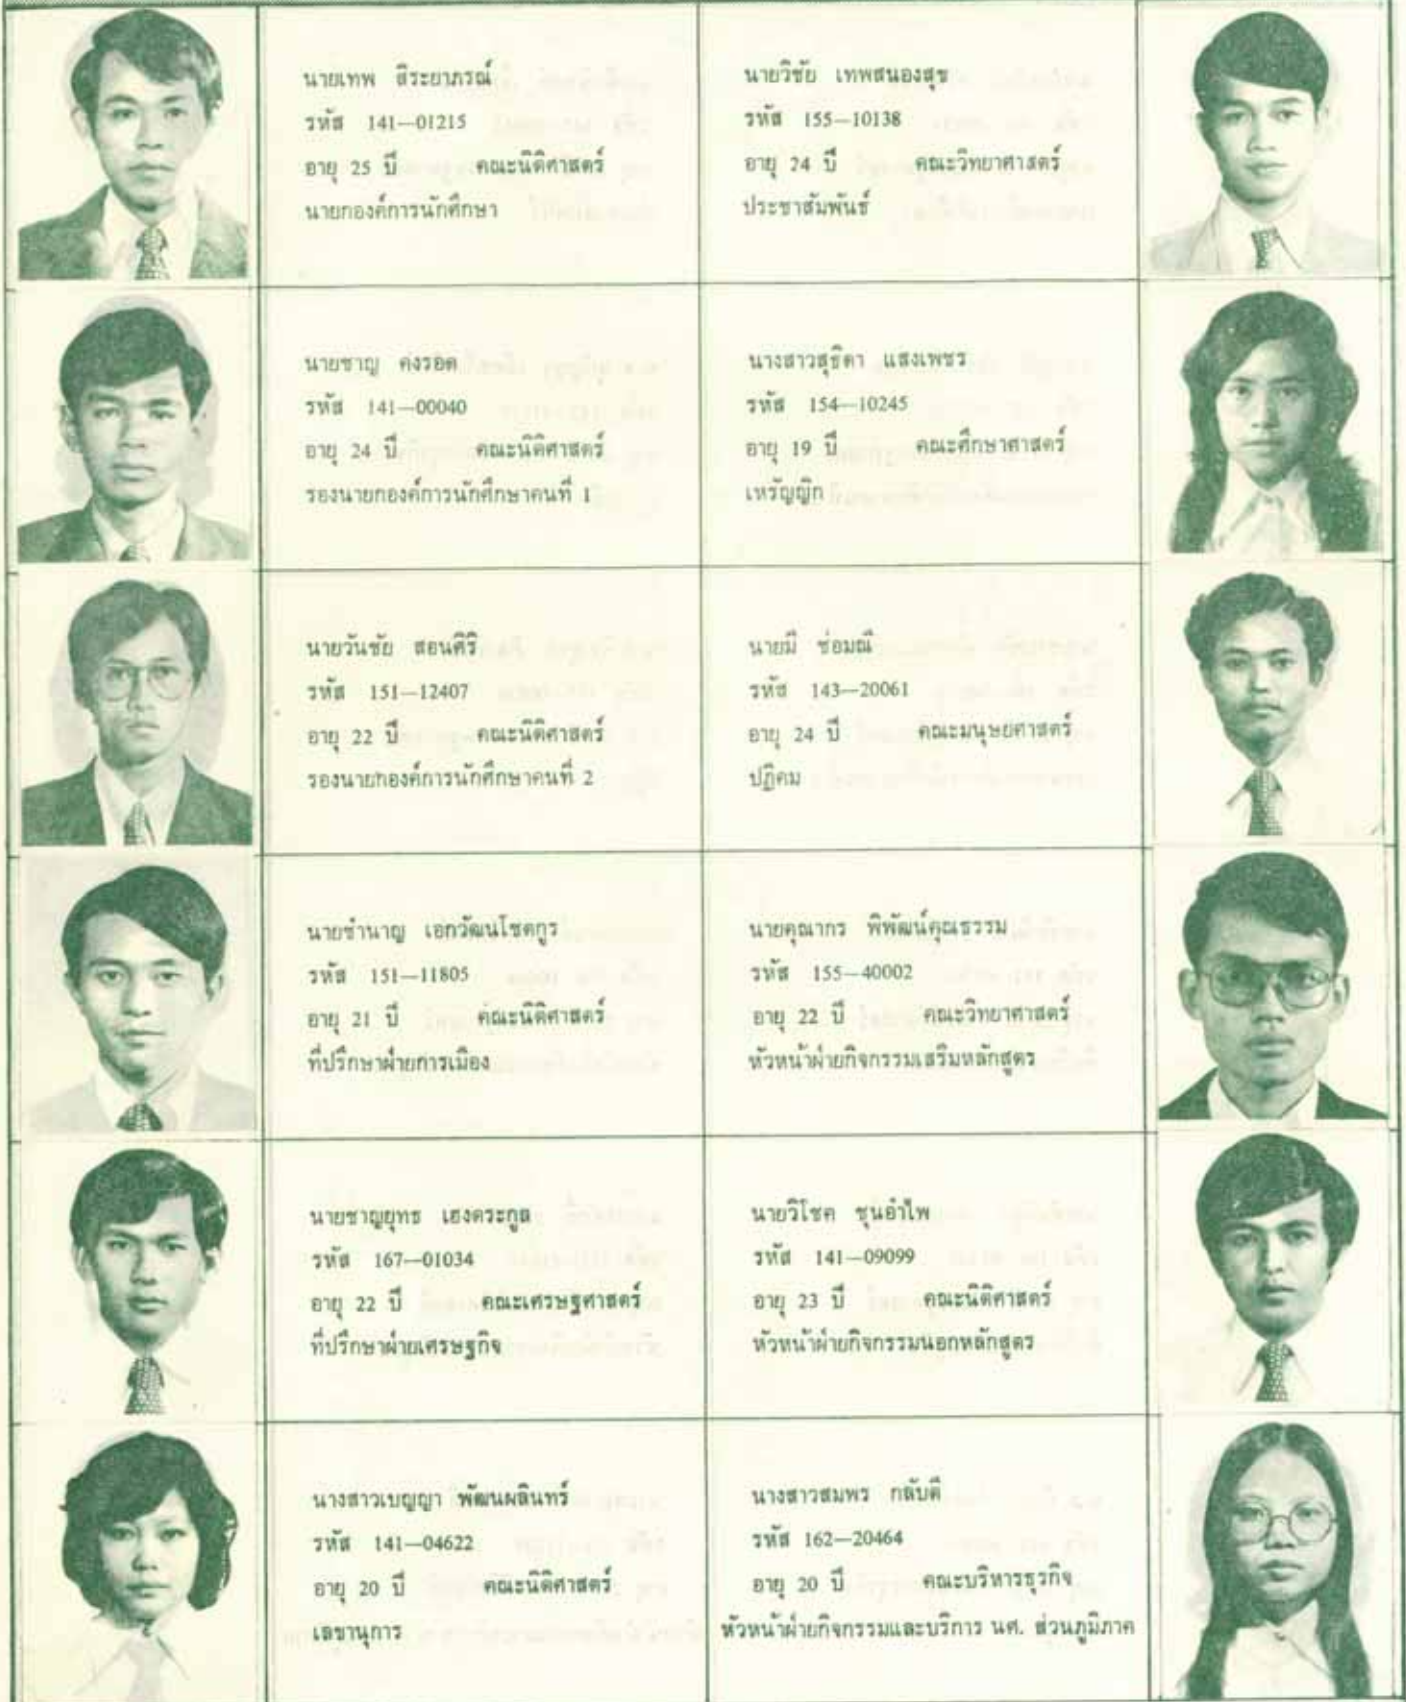 นายเทพ สิระยาภรณ์
รหัส 141—01215
อายุ 25 ปี คณะนิติศาสตร์
นายกองค์การนักศึกษา
นายชาญ คงรอด
รหัส 141—00040
อายุ 24 ปี คณะนิติศาสตร์
รองนายกองค์การนักศึกษาคนที่ 1
นายวันชัย สอนศิริ
รหัส 151—12407
อายุ 22 ปี คณะนิติศาสตร์
รองนายกองค์การนักศึกษาคนที่ 2
นายชำนาญ เอกวัฒนโชตกูร
รหัส 151—11805
อายุ 21 ปี คณะนิติศาสตร์
ที่ปรึกษาฝ่ายการเมือง
นายชาญยุทธ เฮงตระกูล
รหัส 167—01034
อายุ 22 ปี คณะเศรษฐศาสตร์
ที่ปรึกษาฝ่ายเศรษฐกิจ
นางสาวเบญญา พัฒนผลินทร์
รหัส 141—04622
อายุ 20 ปี คณะนิติศาสตร์
เลขานุการ
นายวิชัย เทพสนองสุข
รหัส 155—10138
อายุ 24 ปี คณะวิทยาศาสตร์
ประชาสัมพันธ์
นางสาวสุธิดา แสงเพชร
รหัส 154—10245
อายุ 19 ปี คณะศึกษาศาสตร์
เหรัญญิก
นายมี ช่อมณี
รหัส 143—20061
อายุ 24 ปี คณะมนุษยศาสตร์
ปฏิคม
นายคุณากร พิพัฒน์คุณธรรม
รหัส 155—40002
อายุ 22 ปี คณะวิทยาศาสตร์
หัวหน้าฝ่ายกิจกรรมเสริมหลักสูตร
นายวิโชค ชุนอำไพ
รหัส 141—09099
อายุ 23 ปี คณะนิติศาสตร์
หัวหน้าฝ่ายกิจกรรมนอกหลักสูตร
นางสาวสมพร กลับดี
รหัส 162—20464
อายุ 20 ปี คณะบริหารธุรกิจ
หัวหน้าฝ่ายกิจกรรมและบริการ นศ. ส่วนภูมิภาค